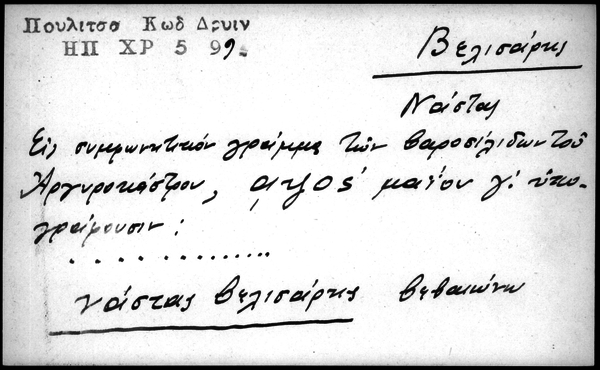 Πουλιτσα Κωδ Δρυιν
ΗΠ ΧΡ 5 99.
Βελισάρης
Νάστας
Εἰς συμφωνητικόν γράμμα τῶν βαροσιλιδων τοῦ
Ἀργυροκάστρου, αψος μαΐου γ! ὑπο-
γράφουσιν :
. . . . . . . . . . . . . .
Νάστας Βελισάρης βεβαιώνω